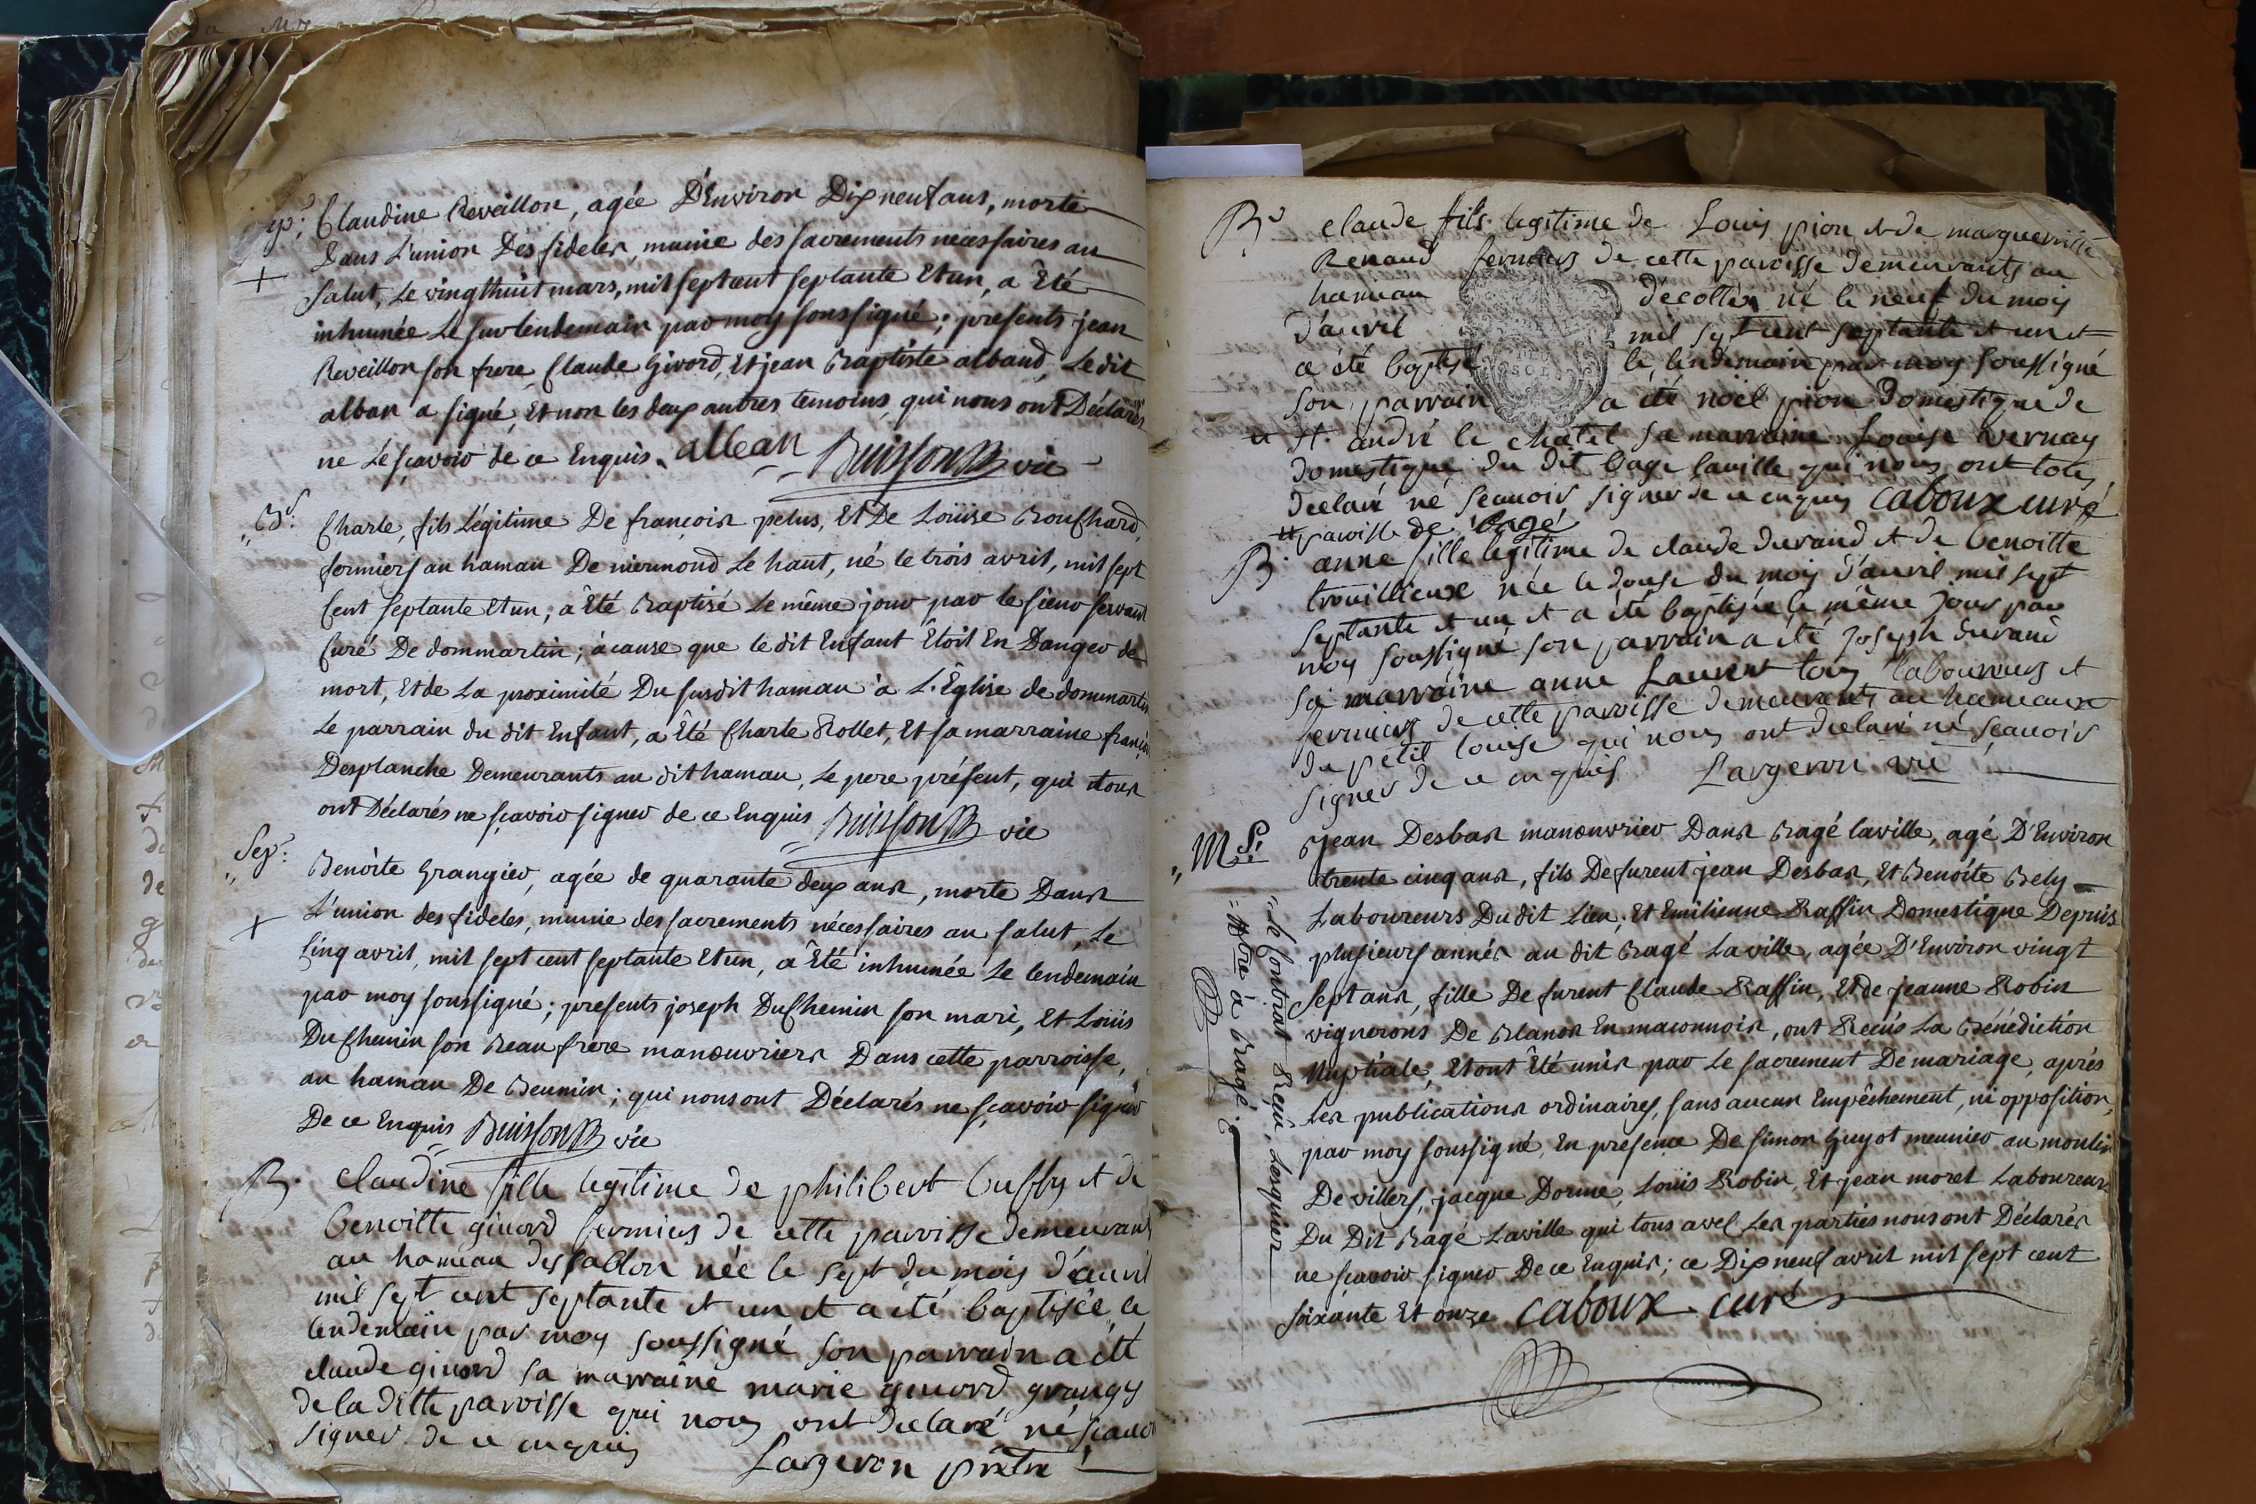 Sep: Claudine Reveillon, agée D'Environ Dix neuf ans, morte
Dans L'union Des fideles, munie des sacrements necessaires au
salut, Le vingthuit mars, mil sept cent septante Et un, a Été
inhumée Le surlendemain par moy soussigné; presents jean
Reveillon son frere, Claude Givord, Et jean Baptiste alband, Le dit
alban a signé, Et non les deux autres temoins qui nous ont Déclarés
ne Le sçavoir de ce Enquis. alban Buisson vic
Bt: Charle, fils Légitime De françois pelus, Et De Loüise Bouchard,
fermiers au hamau De miermond Le haut, né le trois avril, mil sept
Cent septante Et un; a Été Baptisé Le même jour par le sieur servant
Curé De dommartin; à cause que le dit Enfant Étoit En Danger de
mort, Et de La proximité Du susdit hamau à L'Église de dommartin
Le parrain du dit Enfant, a Été Charle Rollet, Et sa marraine françoise
Desplanche Demeurants au dit hamau, Le pere présent, qui tous
ont Déclarés ne sçavoir signer de ce Enquis Buisson vic
Sep: Benoite Grangier, agée de quarante deux ans, morte Dans
L'union des fideles, munie des sacrements nécessaires au salut, Le
Cinq avril, mil sept cent septante Et un, a Été inhumée Le lendemain
par moy soussigné; presents joseph DuChemin son mari, Et Loüis
DuChemin son Beau frere manœuvriers Dans cette parroisse,
au hamau De Beumin; qui nous ont Déclarés ne sçavoir signer
De ce Enquis Buisson vic
B. Claudine fille legitime de philibert buffy et de
benoitte givord fermiers de cette paroisse demeurant
au hameau des sablon née le sept du mois d'avril
mil sept cent septante et un et a été baptisée le
lendemain par moy soussigné son parrain a été
claude givord sa marraine marie givord
de la ditte paroisse qui nous ont declaré né scavoir
signer de ce enquis
Largeron prêtre
Bt claude fils legitime de Louis pion et de marguerite
Renaud fermiers de cette paroisse demeurants au
hameau décolles né le neuf du mois
d'avril mil sept cent septante et un et
a été baptisé le lendemain par moy soussigné
son parrain a été noël pion domestique de
# st. andré le chatel sa marraine Louise vernay
domestique du dit bage laville qui nous ont tous
declaré né scauoir signer de ce enquis caboux curé
# paroisse de bagé
B. anne fille legitime de claude durand et de benoitte
trouillieux née le douse du mois d'avril mil sept
septante et un et a été baptisée le même jour par
moy soussigné son parrain a été joseph durand
sa marraine anne Laurent tous laboureurs et
fermiers de cette paroisse demeurants au hameaux
du petit louise qui nous ont declaré né scauoir
signer de ce enquis Largeron vic
M S. Jean Desbas manœuvrier Dans Bagé laville, agé D'Environ
trente cinq ans, fils De furent jean Desbas, Et Benoite Bely
Laboureurs Du dit Lieu, Et Emilienne Raffin Domestique Depuis
plusieurs annés au dit Bagé La ville, agée D'Environ vingt
sept ans, fille De furent Claude Raffin, Et de jeanne Robin
vignerons De Blanos En maconnois, ont Reçus La Bénédiction
Nuptiale, Et ont Été unis par Le sacrement De mariage, après
Les publications ordinaires, sans aucun Empêchement, ni opposition,
par moy soussigné, En présence De simon Guyot meunier au moulin
De villers, jacque Dorme, Louis Robin, Et jean moret Laboureurs
Du Dit Bagé Laville qui tous avec Les parties nous ont Déclarés
ne sçavoir signer De ce Enquis; ce Dix neuf avril mil sept cent
soixante Et onze caboux curé
Le Contrat Reçu
Nore à Bagé